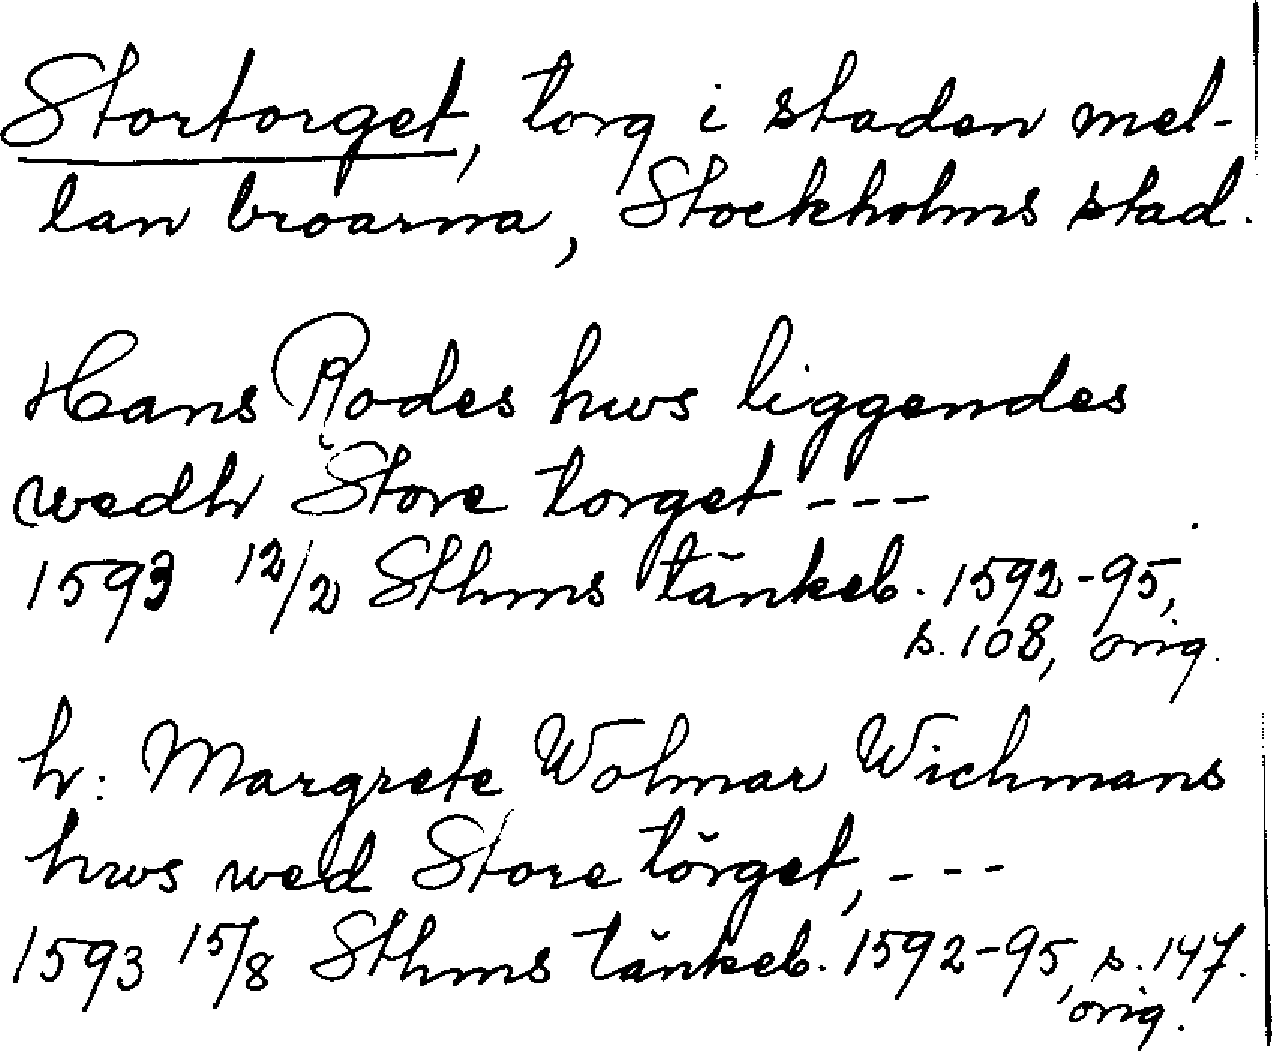 Stortorget, torg i staden mel-
lan broarna, Stockholms stad.
Hans Rodes hws liggendes
wedh Store torget ---
1593 12/2 Sthms tänkeb. 1592-95,
s. 108, orig.
h: Margrete Wolmar Wichmans
hws wed Store törget, ---
1593 15/8 Sthms tänkeb. 1592-95, s. 147.
orig.